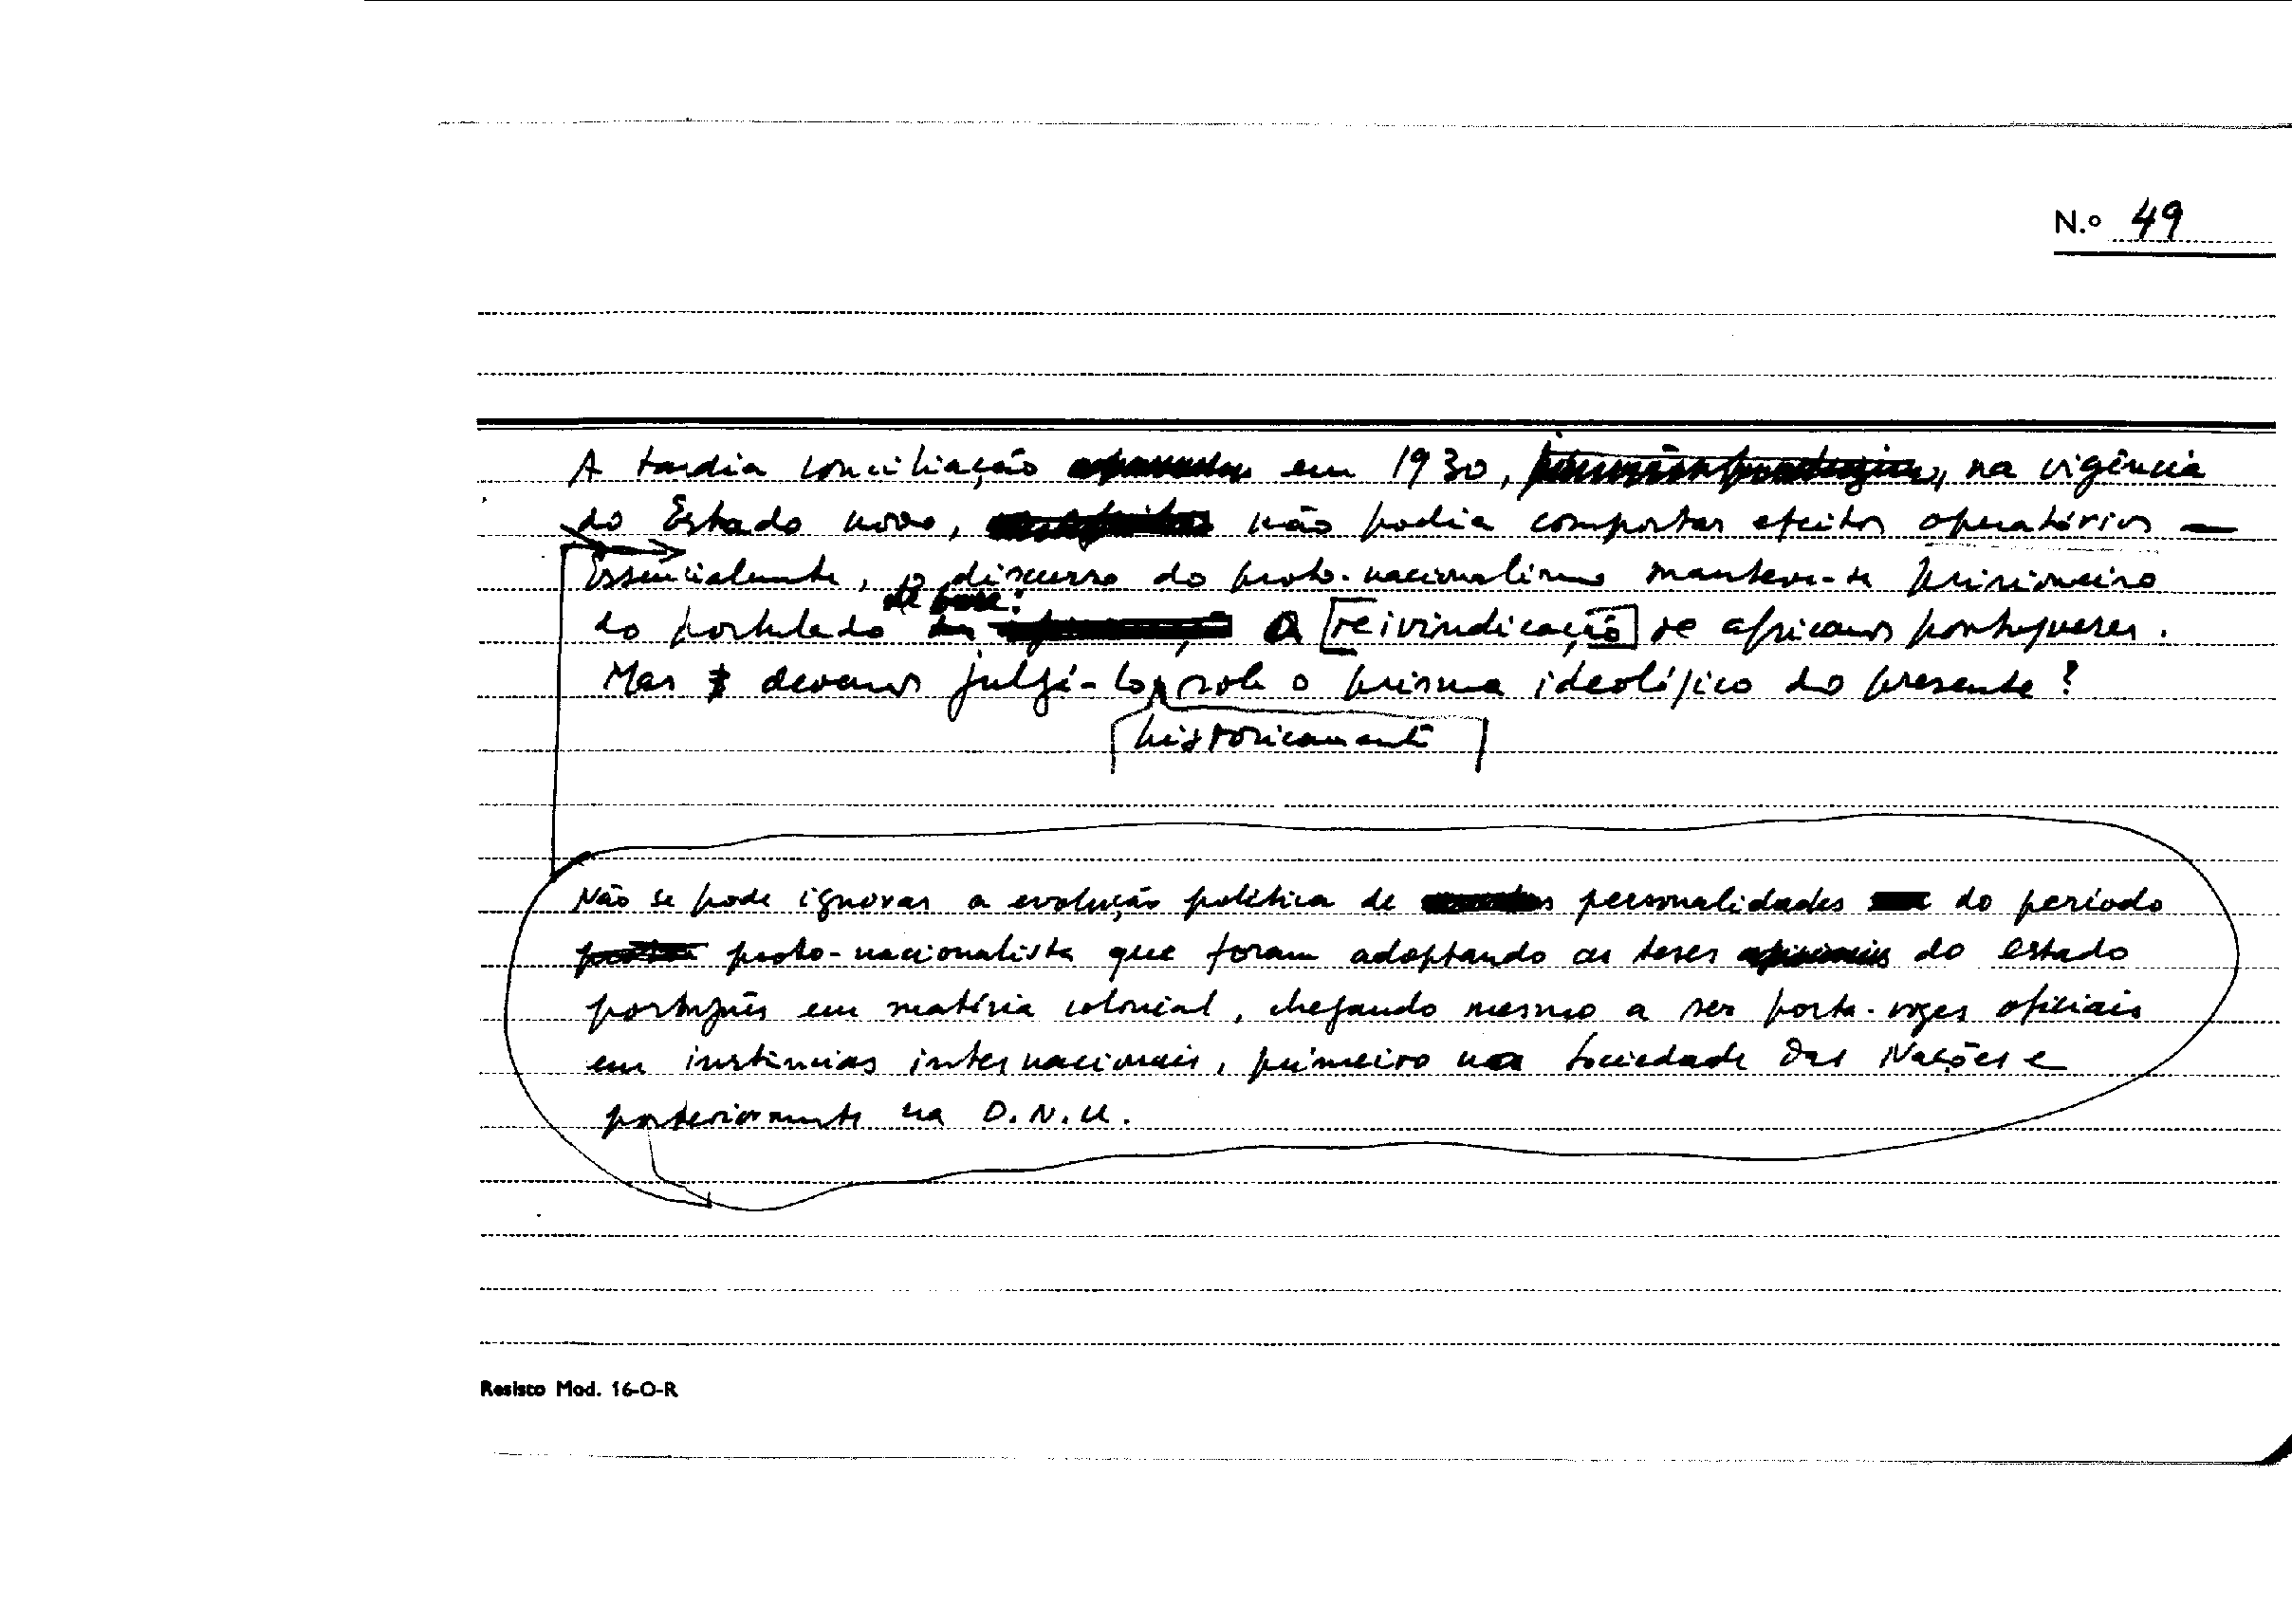 N.o 49
A tardia conciliação em 1930, na vigência
do Estado novo, não podia comportar efeitos operatórios —
Essencialmente, o discurso do proto-nacionalismo manteve-se prisioneiro
de base:
do postulado a [reivindicação] de africanos portugueses.
Mas devemos julgá-lo sob o prisma ideológico do presente?
historicamente
Não se pode ignorar a evolução política de personalidades do período
proto-nacionalista que foram adoptando as teses do estado
português em matéria colonial, chegando mesmo a ser porta-vozes oficiais
em instâncias internacionais, primeiro na Sociedade das Nações e
posteriormente na O.N.U.
Resisto Mod. 16-O-R